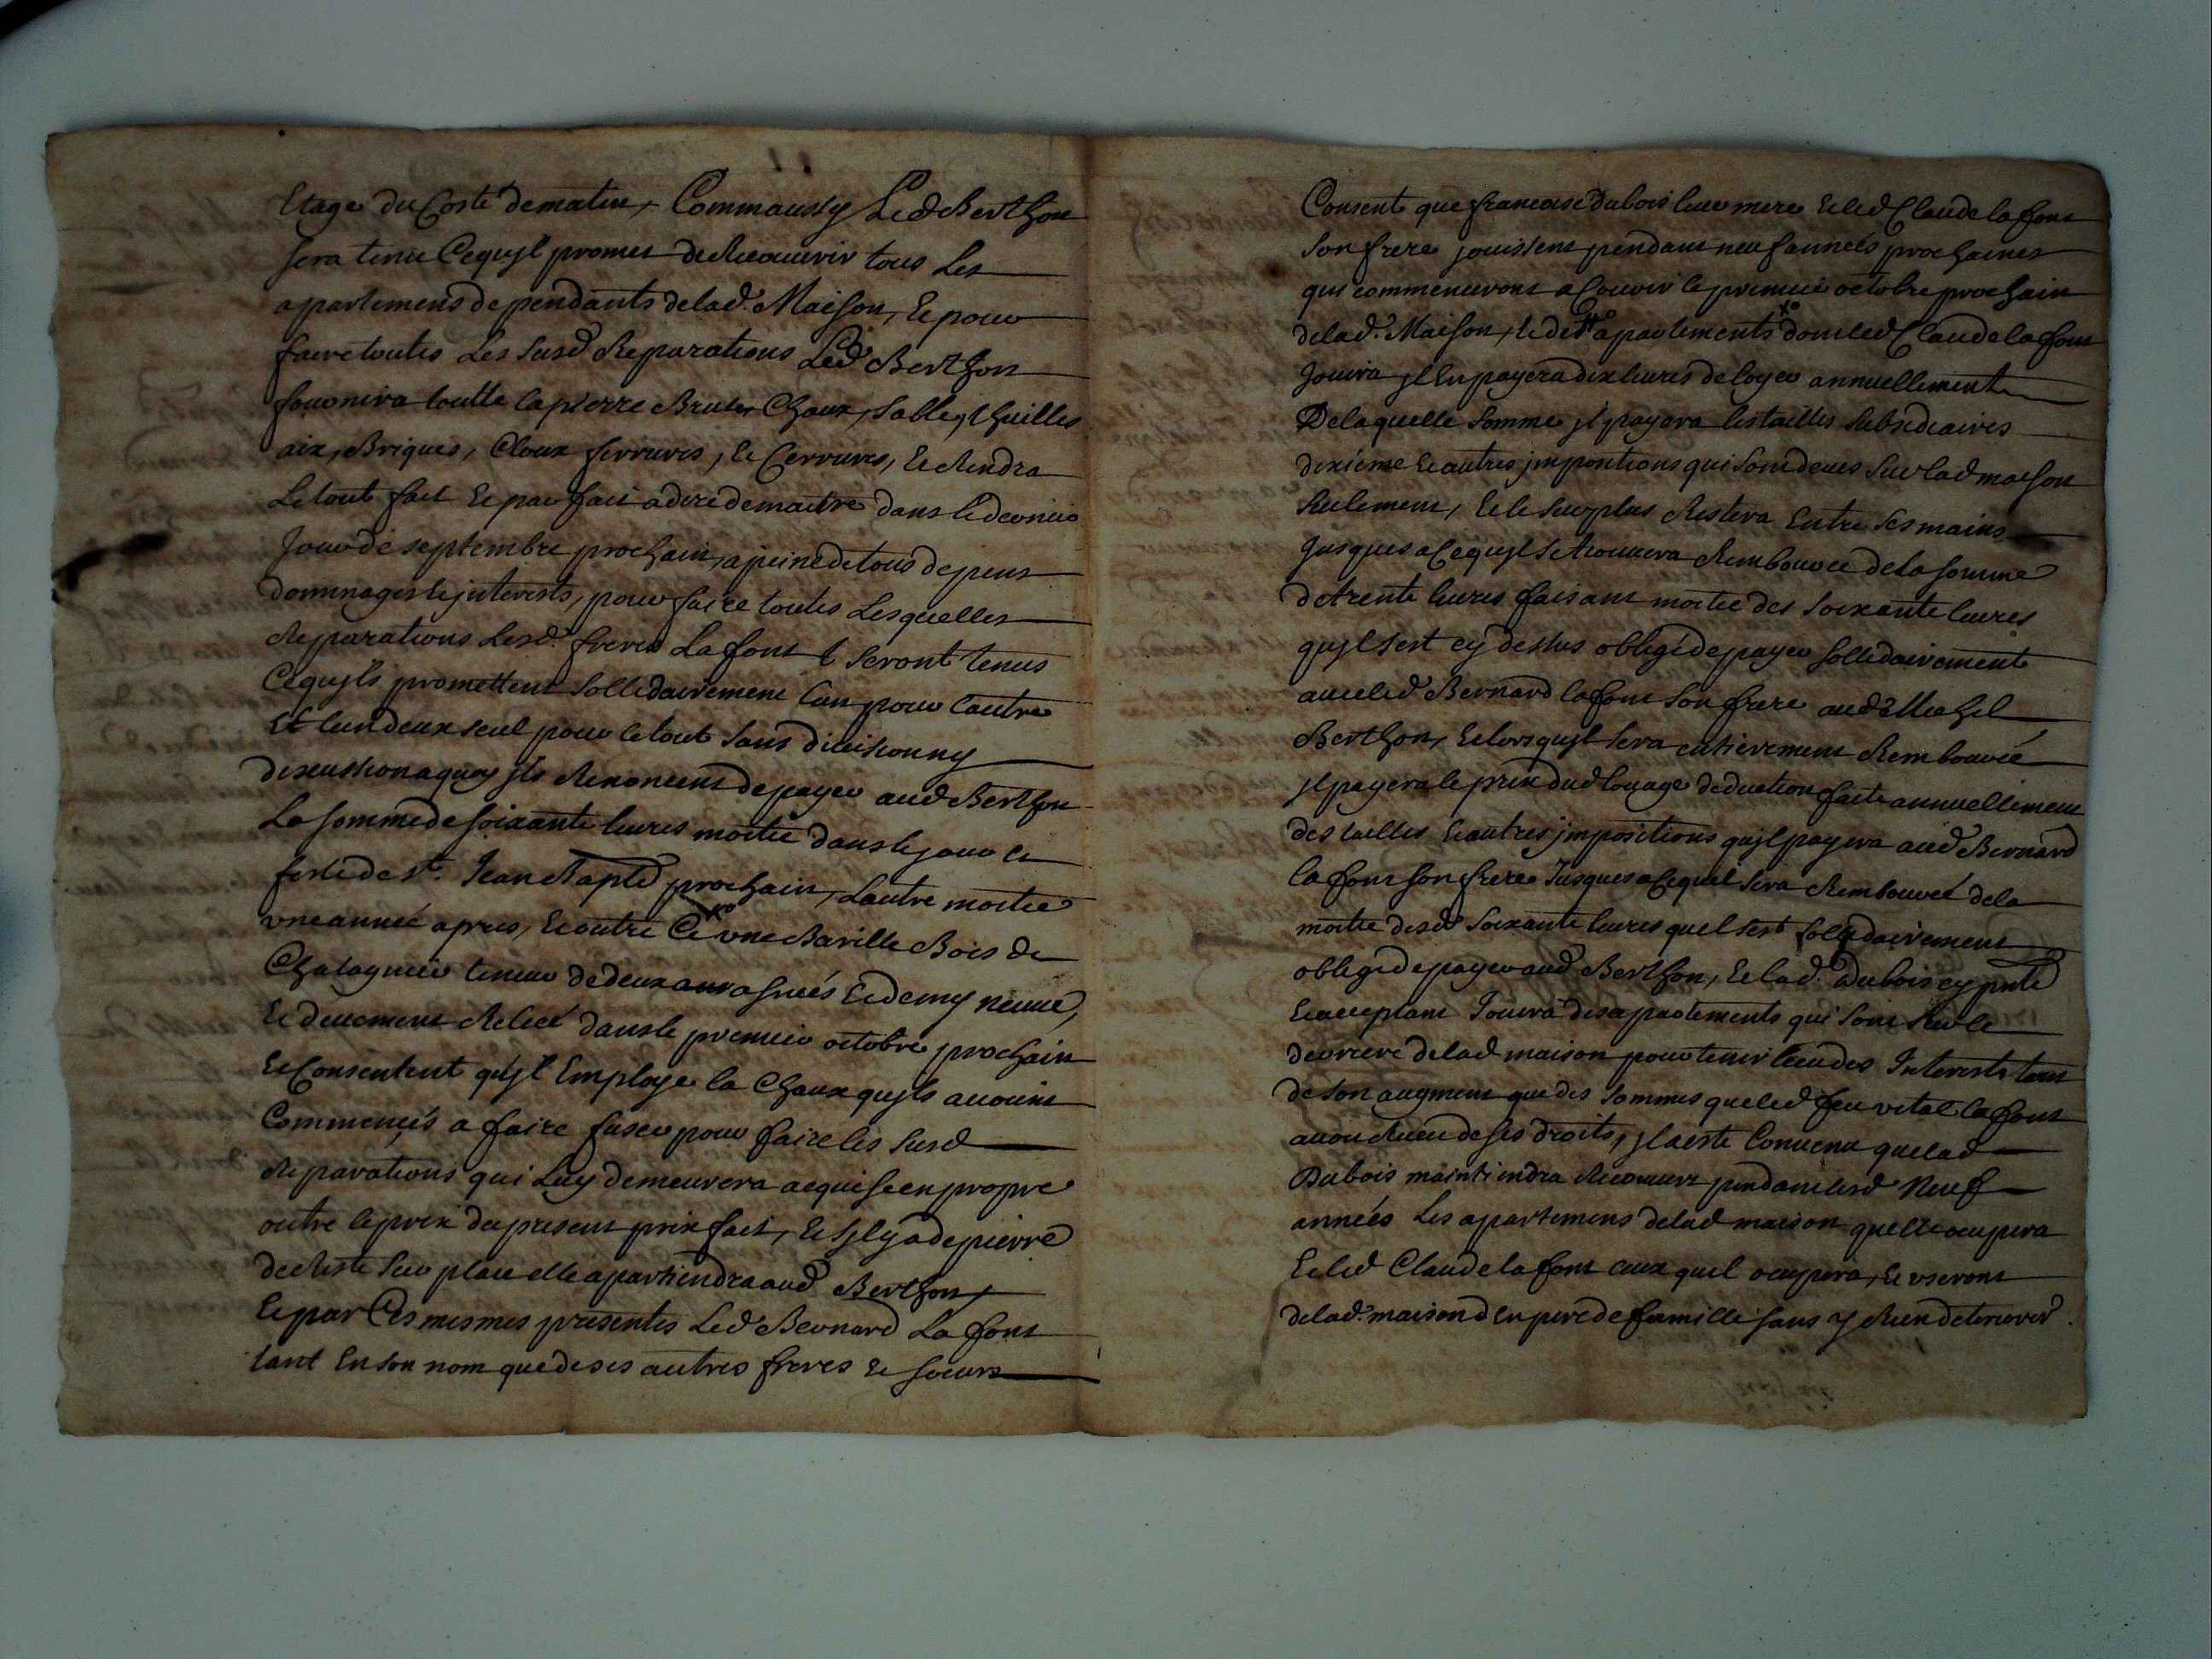 Etage du Costé de matin, Comm aussy Led Berthon
sera tenu Cequyl promet de Recouvrir tous Les
apartemens dependants delad. Maison, Et pour
faire toutes Les susd Reparations Led Berthon
fournira toutte la pierre Brute, Chaux, sable, thuilles
aix, Briques, Cloux ferrures, Et Cerrures, Et Rendra
Le tout fait Et parfait a dire de maitre dans le dernier
Jour de septembre prochain, a peine de tous depens
dommages Et jnterests, pour faire toutes Lesquelles
Reparations Lesd. freres Lafont seront tenus
Cequyls promettent sollidairement l'un pour l'autre
Et l'un deux seul pour le tout sans division ny
discussion a quoy jls Renoncent de payer aud Berthon
La somme de soixante livres moitié dans le jour et
feste de St. Jean Bapte prochain, Lautre moitié
vne année apres, Et outre Ce vne Barille Bois de
Chatagnier teneur de deux asnées Et demy neuve,
Et duement Reliée dans le premier octobre prochain
Et Consentent quyl Employe la Chaux quyls avoient
Commencés a faire fuser pour faire les susd
Reparations qui Luy demeurera acquise en propre
outre le prix du present prix fait, Et sjl y a de pierre
de Reste sur place elle apartiendra aud Berthon
Et par Ces mesmes presentes Led Bernard Lafont
tant En son nom que de ses autres freres Et soeurs
Consent que francoise Dubois leur mere Et led Claude lafont
son frere jouissent pendant neuf années prochaines
qui commenceront a Courir le premier octobre prochain
delad. Maison, Et des apartements dont led Claude lafont
Jouira jl En payera dix livres de loyer annuellement
De laquelle somme jl payera les tailles subsidiaires
dixieme Et autres jmpositions qui sont deues sur lad maison
seulement, Et le surplus Restera Entre ses mains
Jusques a Cequyl se trouvera Rembource de la somme
de trente livres faisant moitié des soixante livres
quyl s'est cy dessus obligé de payer sollidairement
avec led Bernard lafont son frere aud Michel
Berthon, Et lorsquyl sera entierement Rembourcé
jl payera le prix dud louage deduction faite annuellement
des tailles Et autres jmpositions quyl payera aud Bernard
lafont son frere Jusques a Cequil sera Rembourcé de la
moitié desd soixante livres quel s'est solidairement
obligé de payer aud Berthon, Et lad. Dubois cy pnte
Et acceptant Jouira des apartements qui sont sur le
derriere delad maison pour tenir lieu des Interests tant
de son augment que des sommes que led feu vital lafont
avoit Receu de ses droits, jl a esté Convenu que lad
Dubois maintiendra Recouvert pendant lesd Neuf
années Les apartemens delad maison quelle occupera
Et led Claude lafont ceux quil occupera, Et vseront
delad. maison En pere de famille sans y Rien deteriorer.